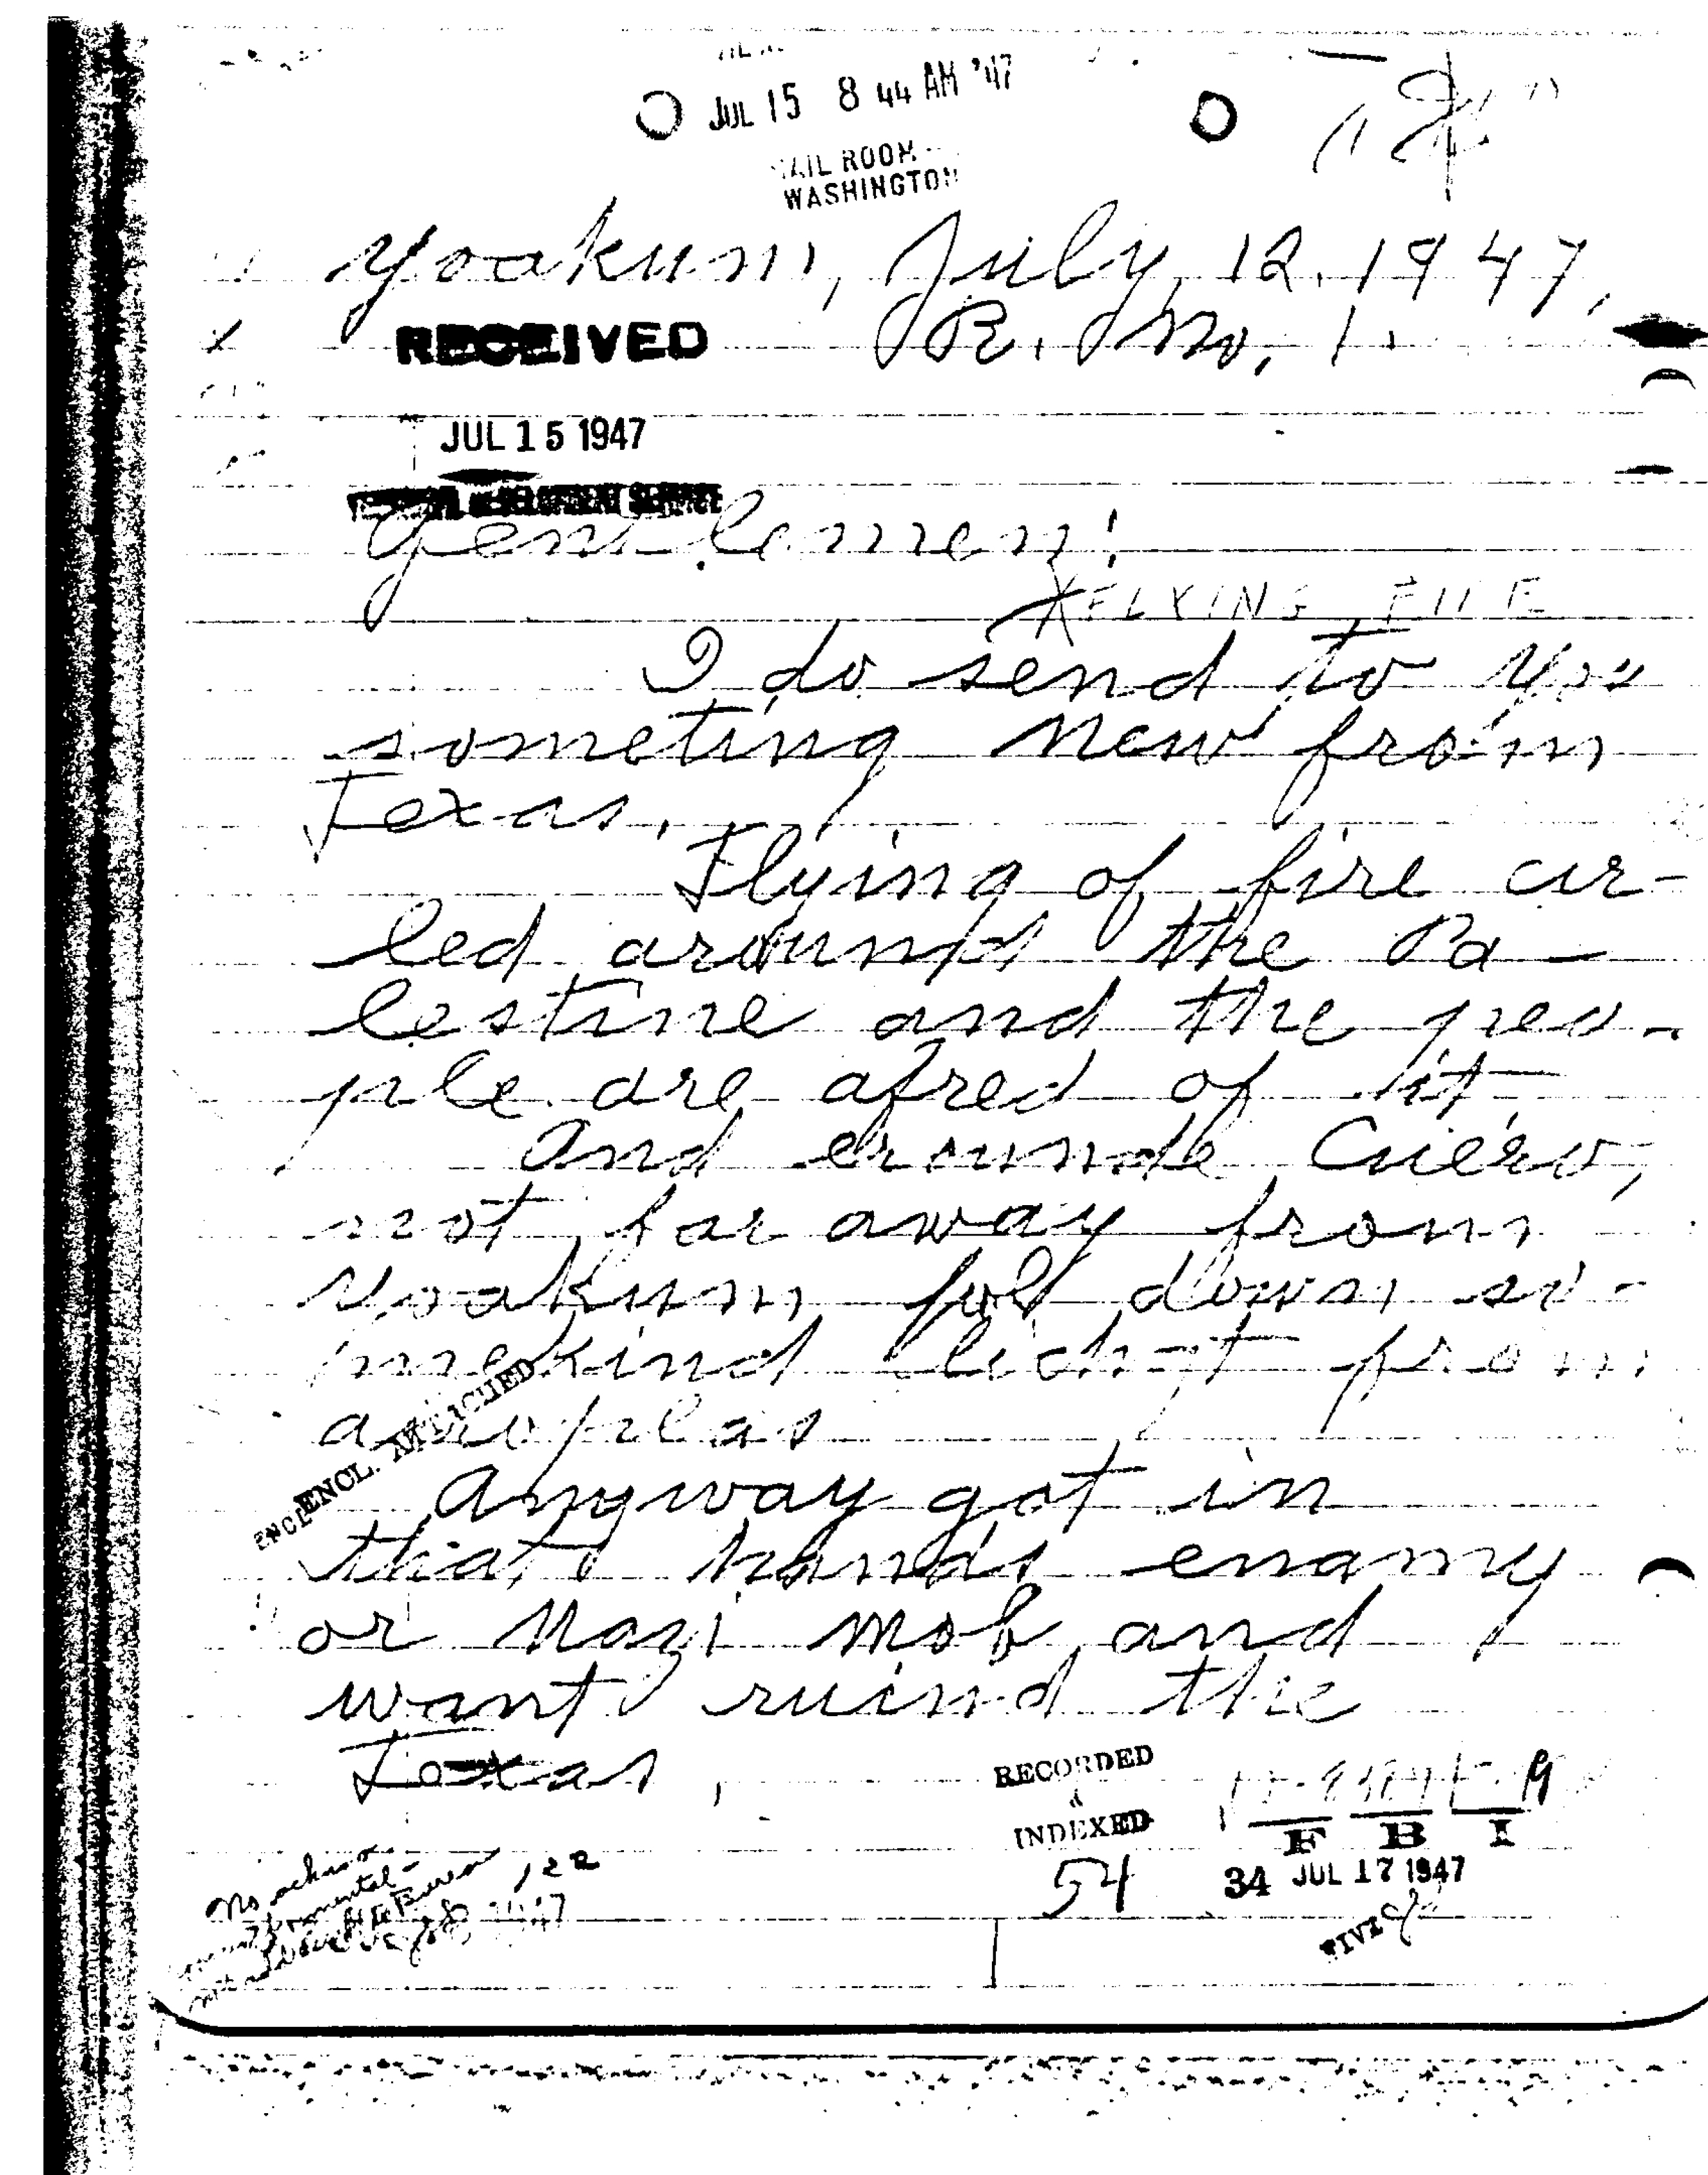 JUL 15 8 44 AM '47
MAIL ROOM
WASHINGTON
Yoakum, July, 12. 1947,
RECEIVED
R. No, 1.
JUL 15 1947
Gentlemen!
FLYING
I do send to you
someting new from
Texas.
Flying of fire cir-
led around the Pa-
lestine and the peo-
ple are afred of it.
And erounde Cuero,
not far away from
Yoakum fol down so-
mekind licht from
Anyway got in
that hands enamy
or Nazi mob and
want ruind the
Texas,
ENCL. ATTACHED
RECORDED
&
INDEXED
F B I
54
34 JUL 17 1947
No action
122